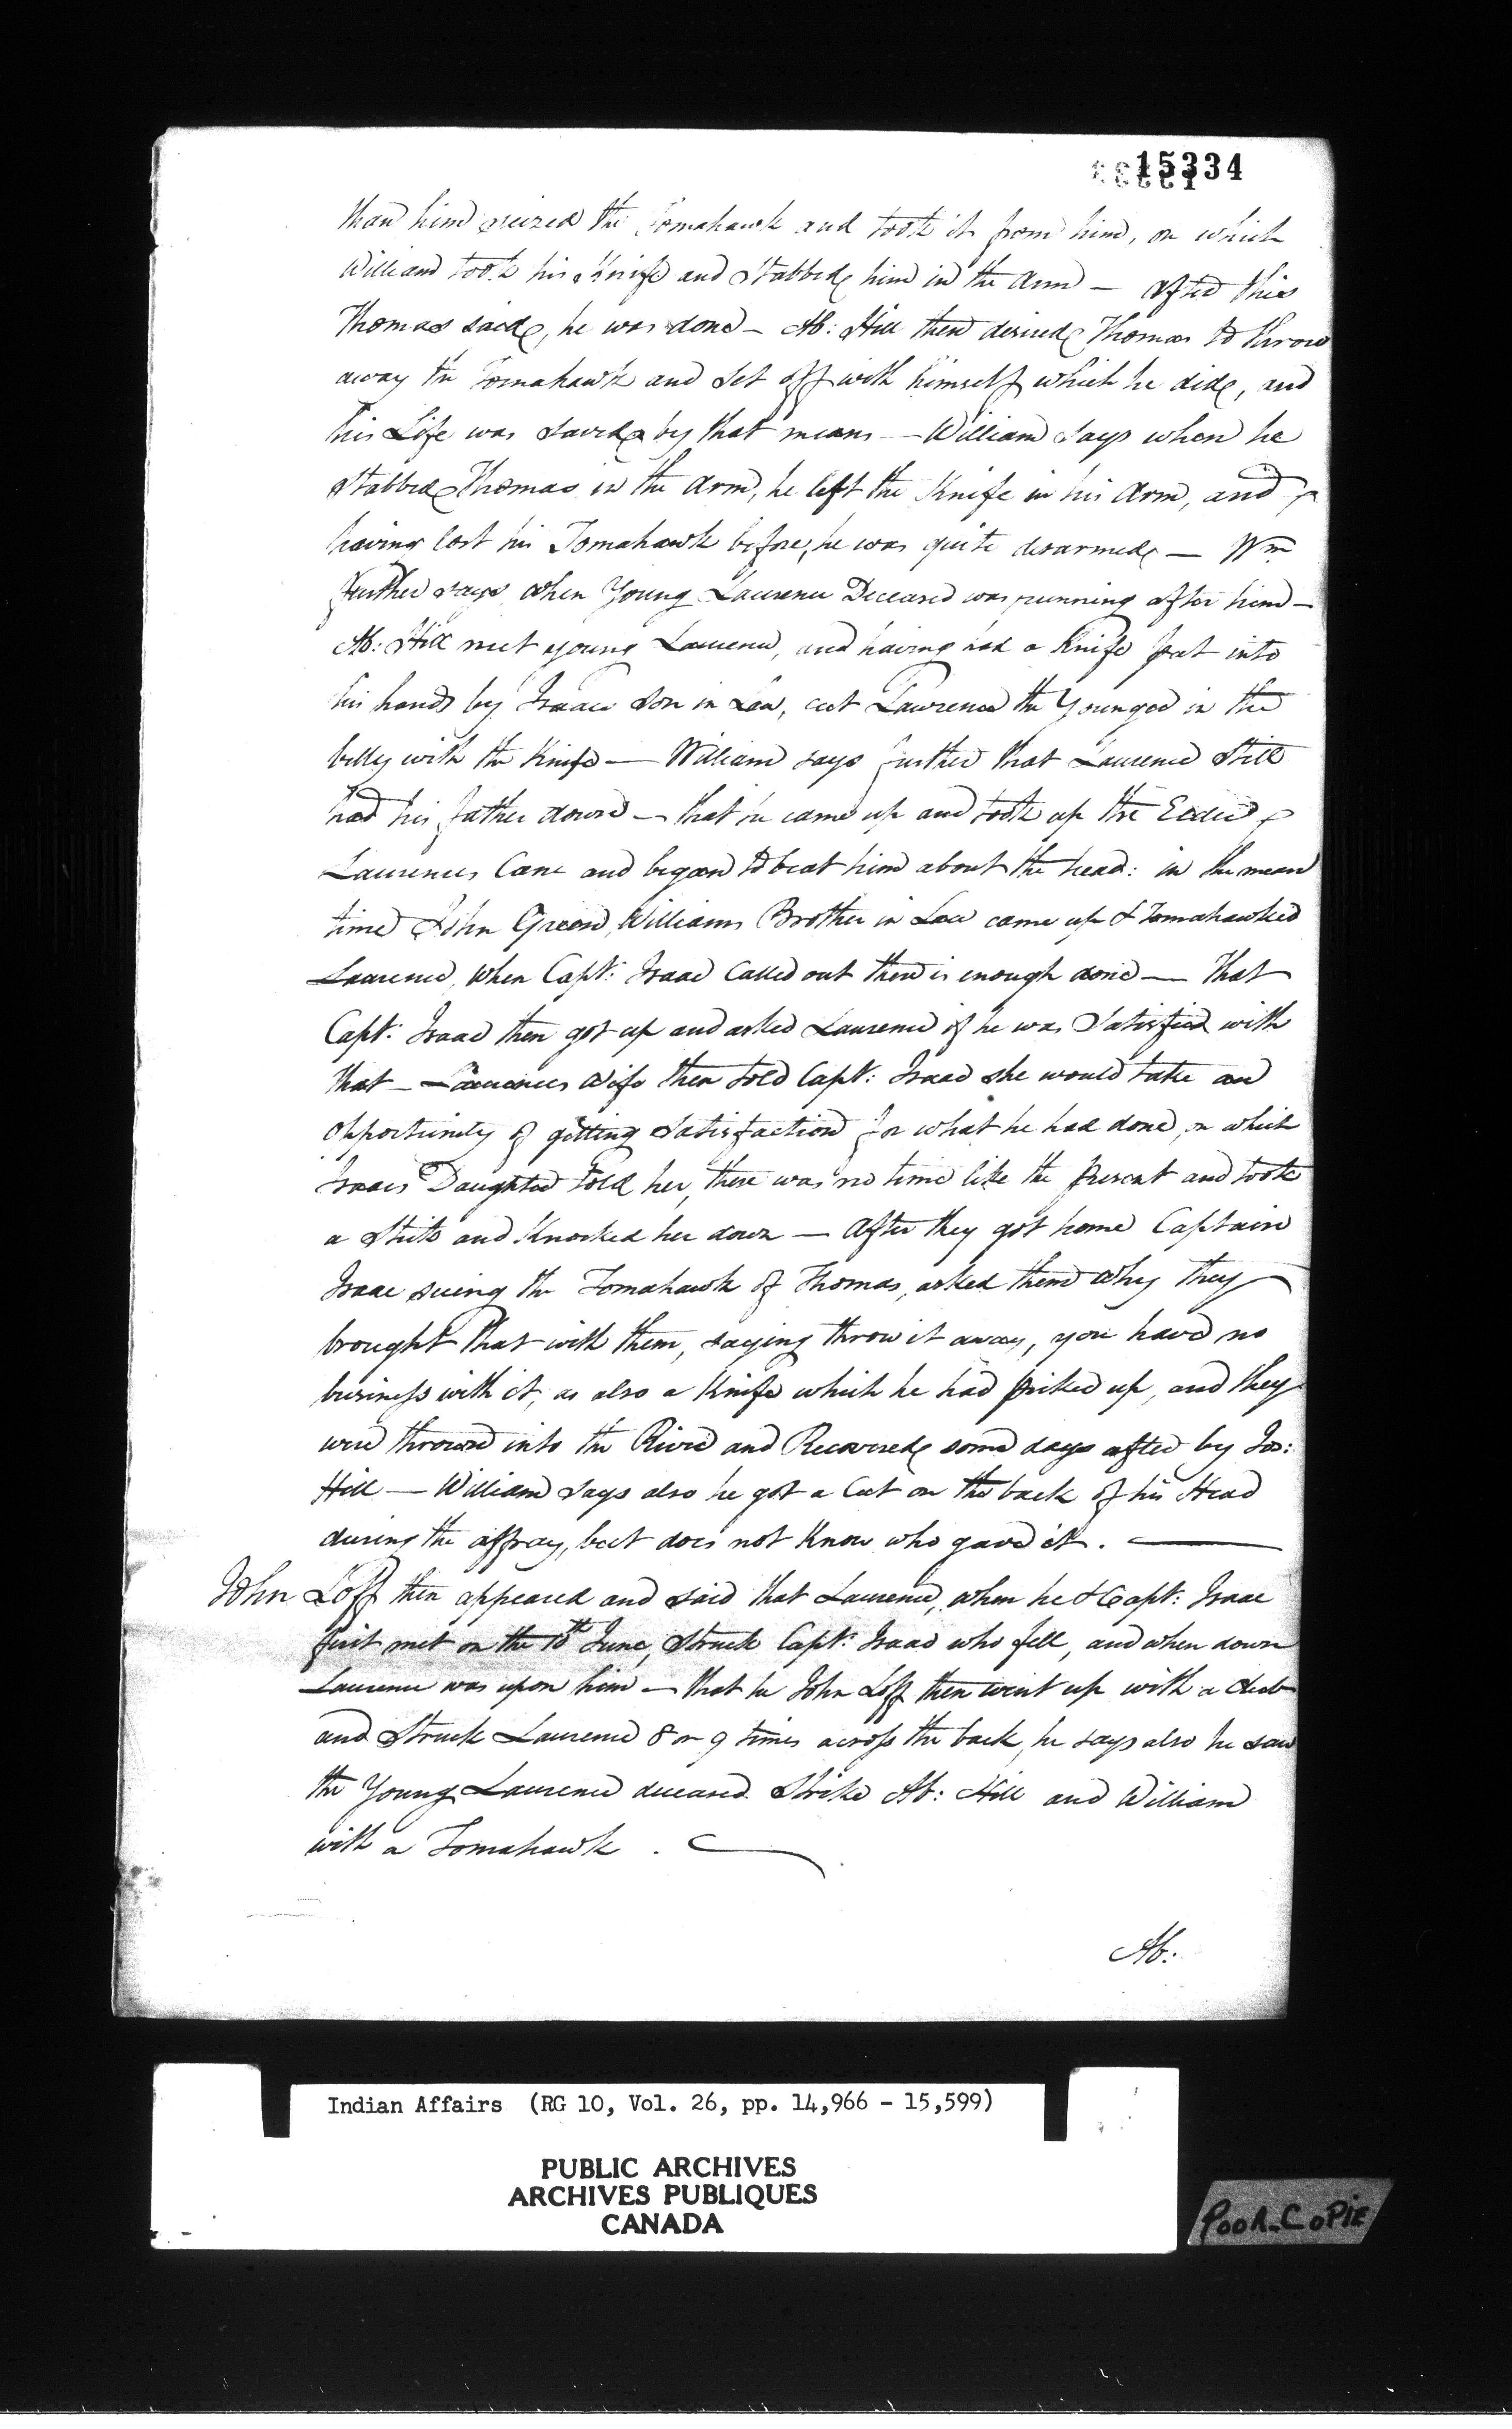 15334
than him seized the Tomahawk and took it from him, on which
William took his Knife and Stabbed him in the Arm — after this
Thomas said, he was done — Ab: Hill then desired Thomas to throw
away the Tomahawk and set off with himself which he did, and
his Life was saved by that means — William says when he
Stabbed Thomas in the Arm, he left the Knife in his Arm, and
having lost his Tomahawk before, he was quite disarmed — Wm
further says when Young Laurence Deceased was running after him —
Ab: Hill met young Laurence, and having had a Knife put into
his hands by Isaacs Son in Law, cut Lawrence the Younger in the
belly with the Knife — William says further that Laurence Still
had his father down — that he came up and took up the Elder
Laurences Cane and began to beat him about the head: in the mean
time John Green, Williams Brother in Law came up & Tomahawked
Laurence, when Capt: Isaac Called out there is enough done — That
Capt: Isaac then got up and asked Laurence if he was Satisfied with
that — Laurences Wife then told Capt: Isaac she would take an
opportunity of getting Satisfaction for what he had done, on which
Isaacs Daughter told her, there was no time like the present and took
a Stick and Knocked her down — After they got home Captain
Isaac seeing the Tomahawk of Thomas, asked them why they
brought that with them, saying throw it away, you have no
business with it, as also a Knife which he had picked up, and they
were thrown into the River and Recovered some days after by Jos:
Hill — William says also he got a Cut on the back of his Head
during the affray, but does not Know who gave it. —
John Loff then appeared and said that Laurence, when he & Capt: Isaac
first met on the 10th June, Struck Capt: Isaac who fell, and when down
Laurence was upon him — that he John Loff then went up with a Club
and Struck Laurence 8 or 9 times across the back, he says also he saw
the Young Laurence deceased Strike Ab: Hill and William
with a Tomahawk.
Ab:
Indian Affairs (RG 10, Vol. 26, pp. 14,966 - 15,599)
PUBLIC ARCHIVES
ARCHIVES PUBLIQUES
CANADA
POOR COPIE